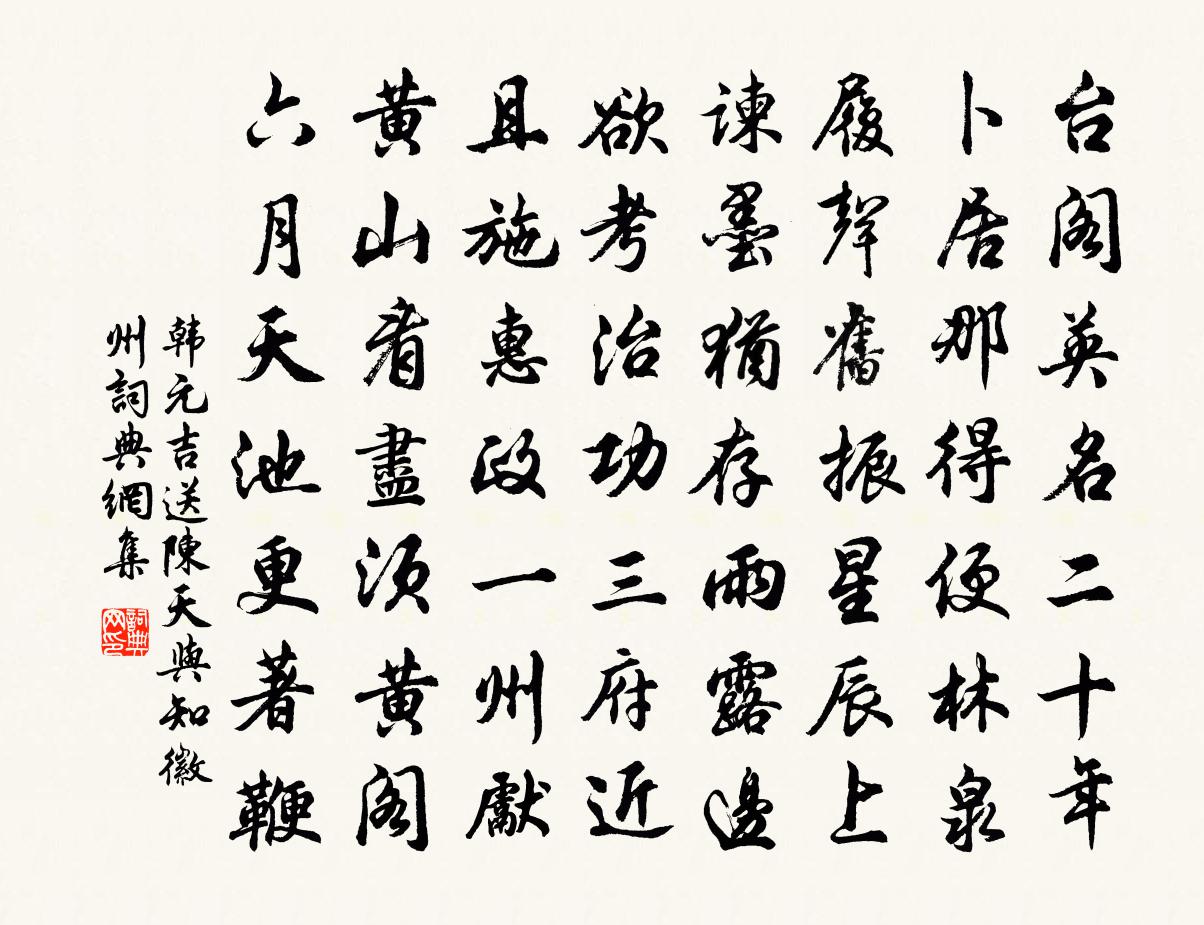 台閣英名二十年
卜居那得便林泉
履聲舊振星辰上
諫墨猶存雨露邊
欲考治功三府近
且施惠政一州獻
黃山看盡須黃閣
六月天池更著鞭
韩元吉送陳天與知徽
州詞典網集
詞典
网印